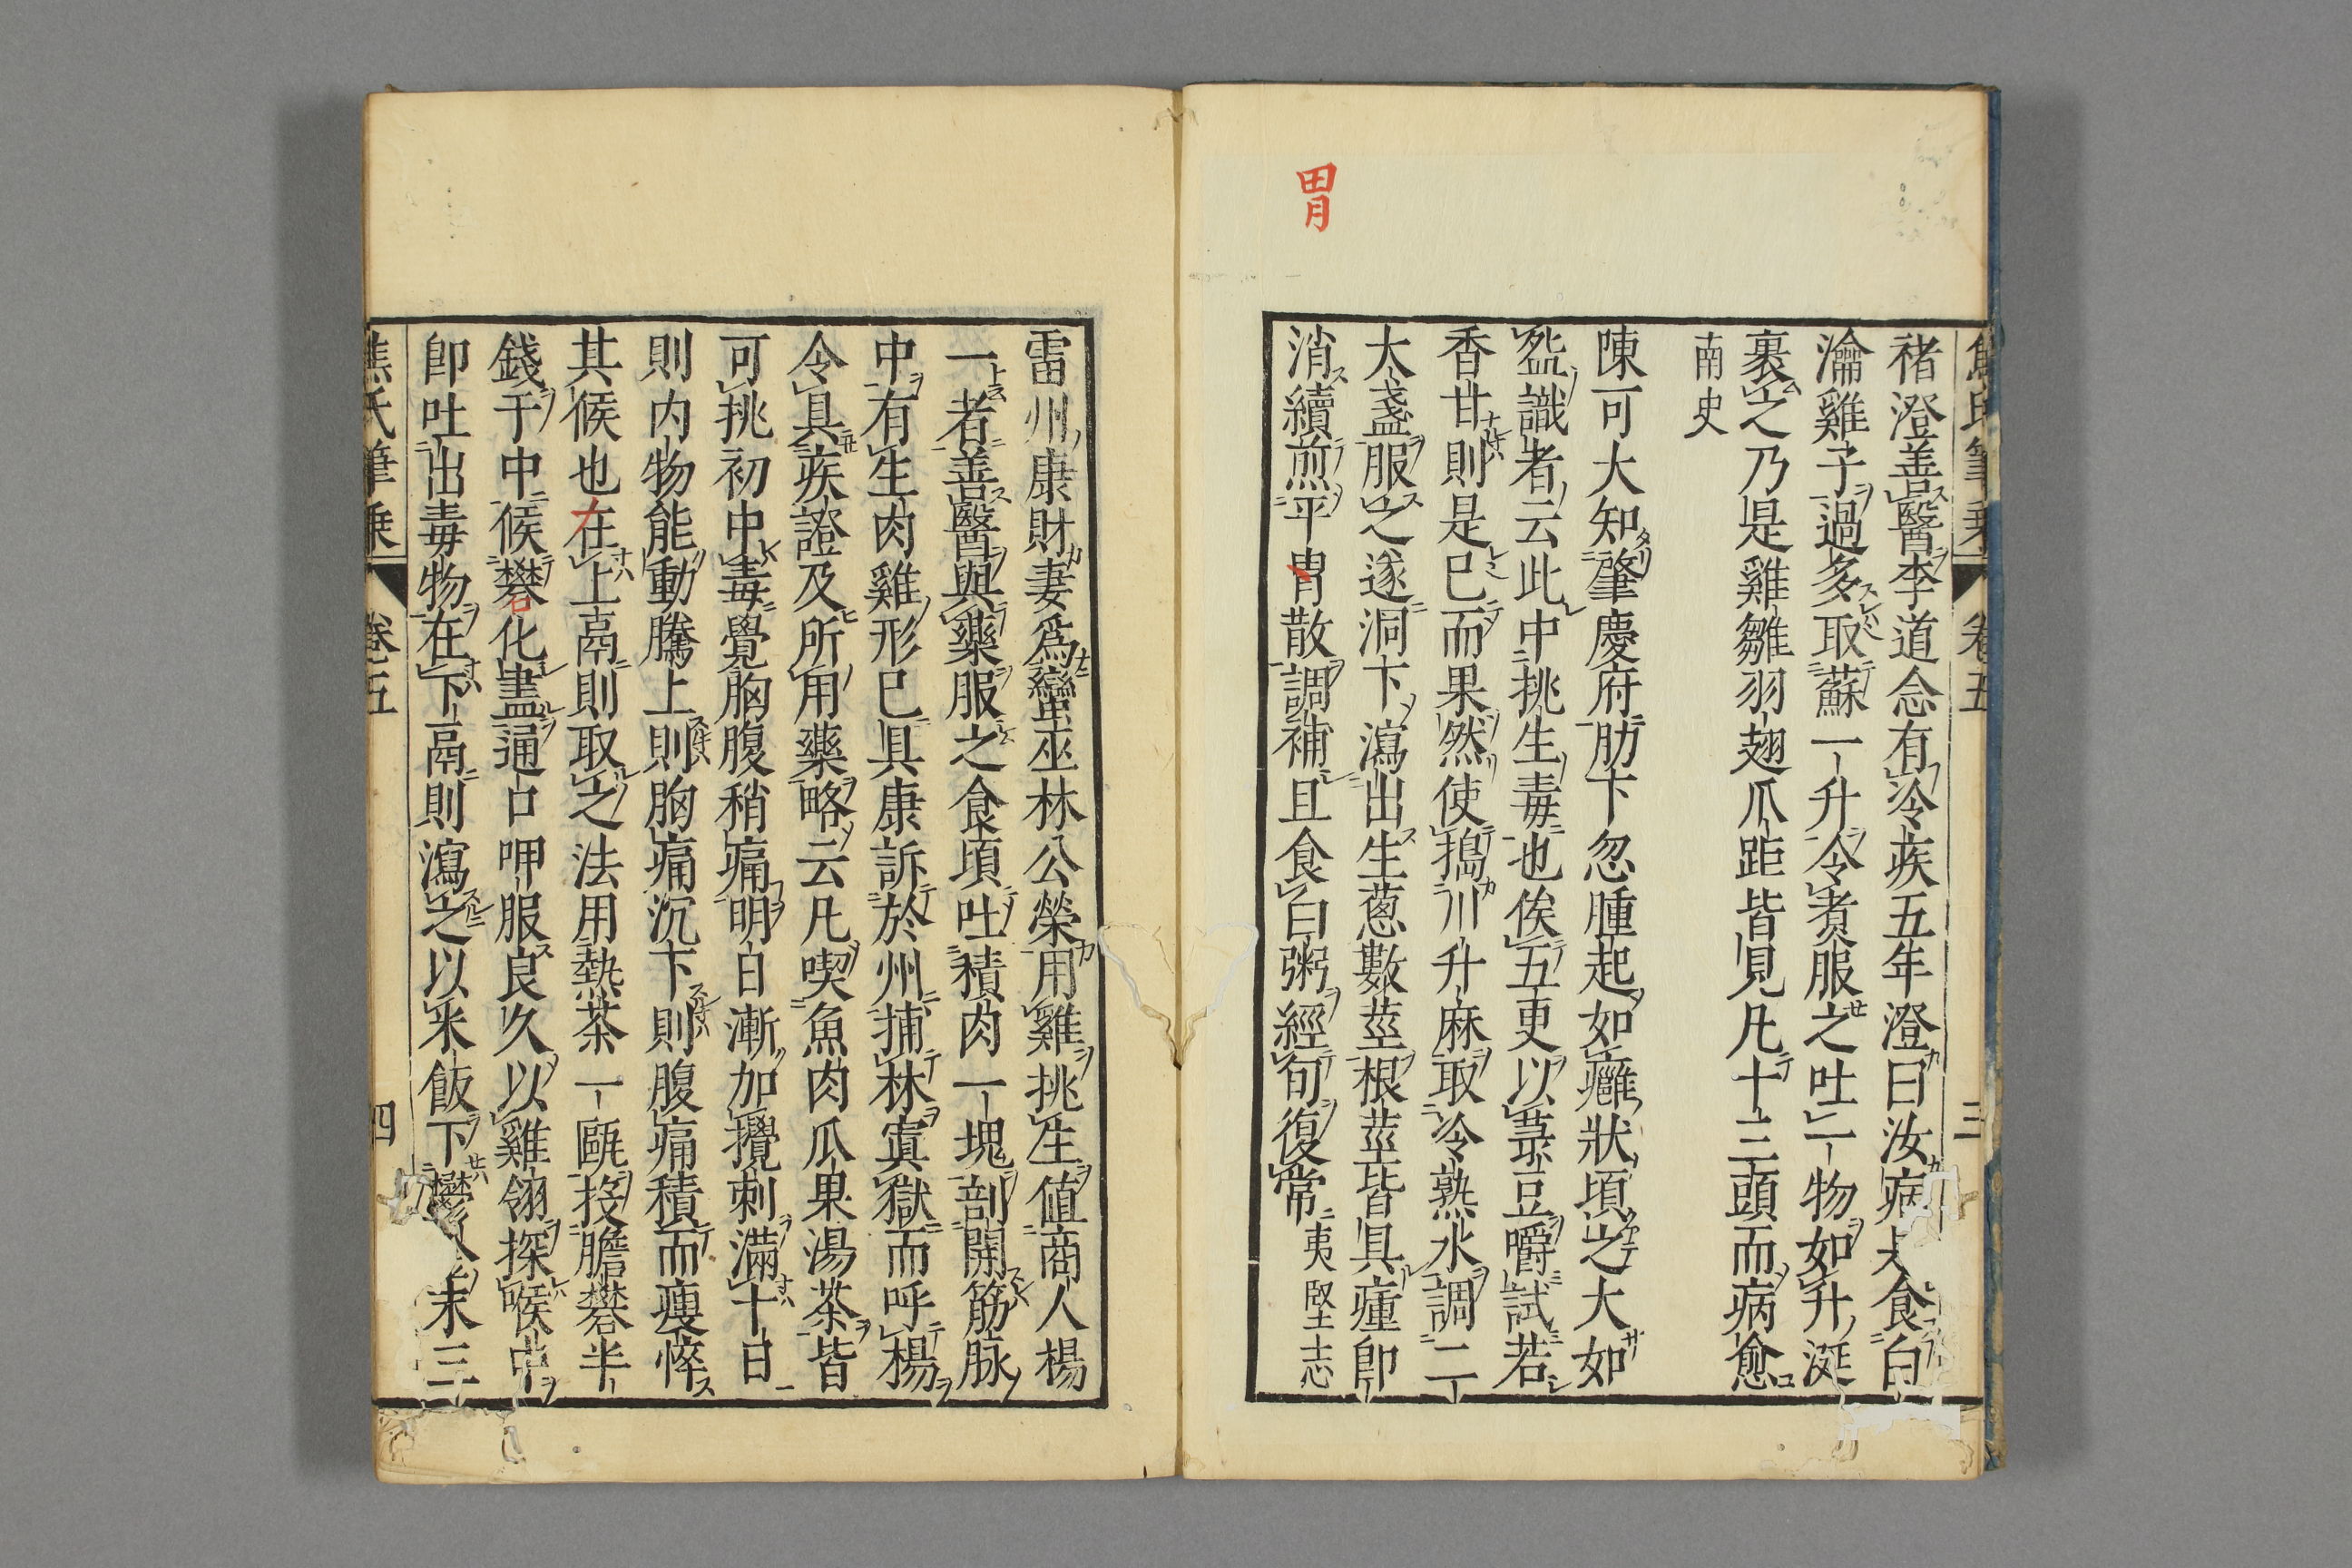 胃
褚澄善醫李道念有冷疾五年澄曰汝病 食白
瀹雞子過多取蘇一升令煑服之吐一物如升涎
裹之乃是雞雛羽翅爪距皆見凡十三頭而病愈
南史
陳可大知肇慶府肋下忽腫起如癰狀頃之大如
盌識者云此中挑生毒也俟五更以菉豆嚼試若
香甘則是已而果然使搗川升麻取冷熟水調二
大盞服之遂洞下瀉出生蔥數莖根莖皆具瘇卽
消續煎平胃散調補且食白粥經旬復常 夷堅志
卷五 三
雷州康財妻爲蠻巫林公榮用雞挑生値商人楊
一者善醫與藥服之食頃吐積肉一塊剖開筋脉
中有生肉雞形已具康訴於州捕林寘獄而呼楊
令具疾證及所用藥略云凡喫魚肉瓜果湯茶皆
可挑初中毒覺胸腹稍痛明日漸加攪刺滿十日
則内物能動騰上則胸痛沉下則腹痛積而瘦悴
其候也在上鬲則取之法用熱茶一甌投膽礬半
錢于中候礬化盡通口呷服良久以雞翎探喉中
卽吐出毒物在下鬲則瀉之以米飯下 末三
焦氏筆乘 卷五 四